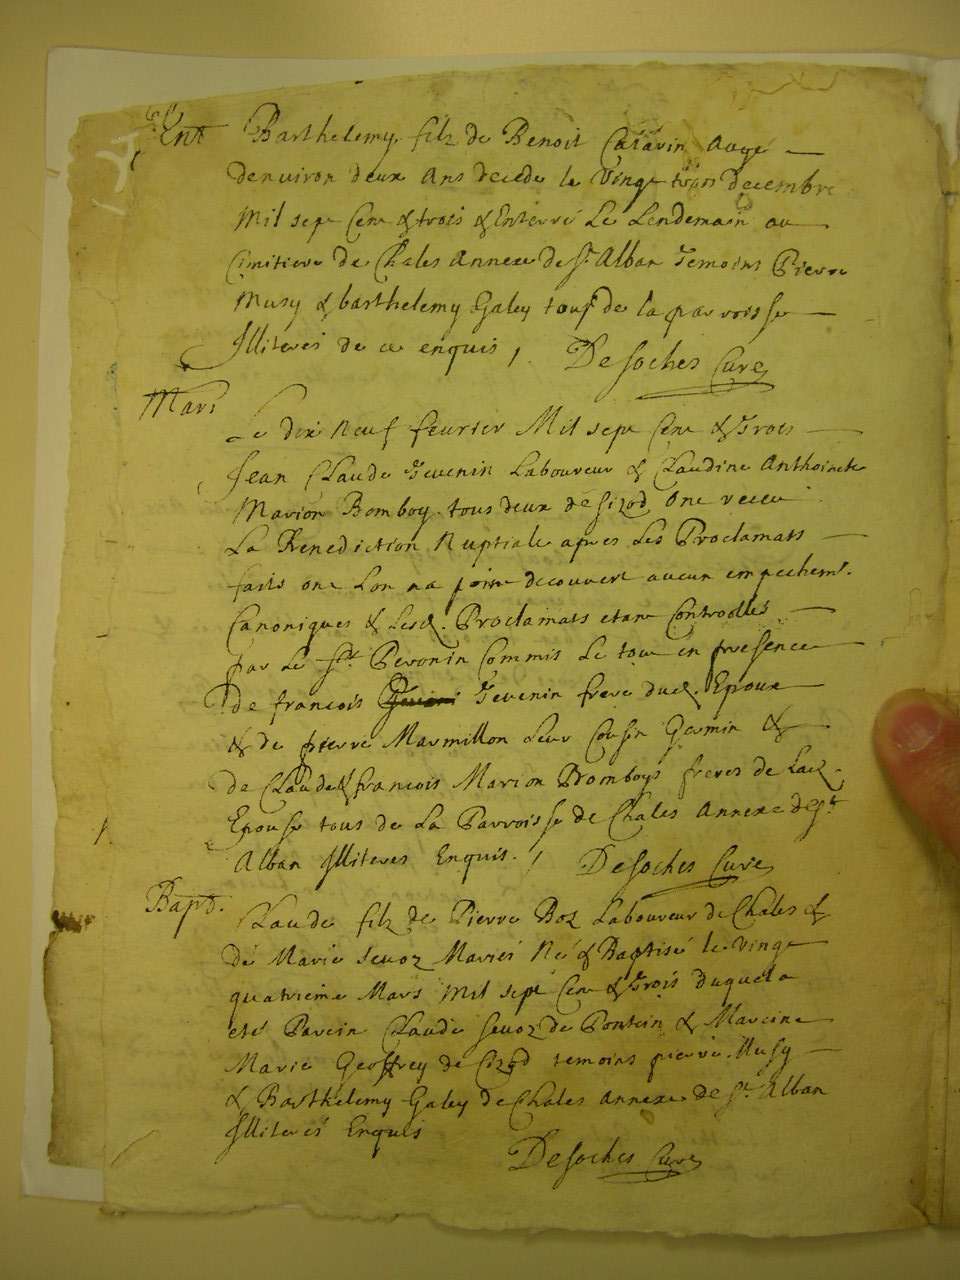 Ent Barthelemy filz de Benoit Catavin Aage
denviron deux Ans decede le Vingt trois decembre
Mil sept Cent & trois & Enterré Le Lendemain au
Cimitiere de Chales Annexe de St Alban Temoins Pierre
Musy & barthelemy Galey tous de la parroisse
Illiterés de ce enquis, DeSoches Curé
Mari Le dix Neuf feurier Mil sept Cent & Trois
Jean Claude Tevenin Laboureur & Claudine Anthoinete
Marion Bomboy tous deux de Sizod Ont receu
La Benediction Nuptiale apres Les Proclamats
faits ont Lon na point decouvert aucun empechemt.
Canoniques & Lesd. Proclamats etant Controollés
par Le Sr. Peronin Commis Le tout en presence
de francois Tevenin frere dud. Epoux
& de pierre Marmillon Leur Cousin Germin &
de Claude & francois Marion Bomboys freres de Lad.
Epouse tous de La Parroisse de Chales Annexe de St.
Alban Illiteres Enquis., DeSoches Curé
Bapt. Claude filz de Pierre Boz Laboureur de Chales &
de Marie Sevoz Mariés Né & Baptisé le Vingt
quatrieme Mars Mil sept Cent & Trois duquel a
eté Parein Claude Sevoz de Pontein & Mareine
Marie Geoffrey de Cizod temoins pierre Musy
& Barthelemy Galey de Chales Annexe de St. Alban
Illiterés Enquis
DeSoches Curé